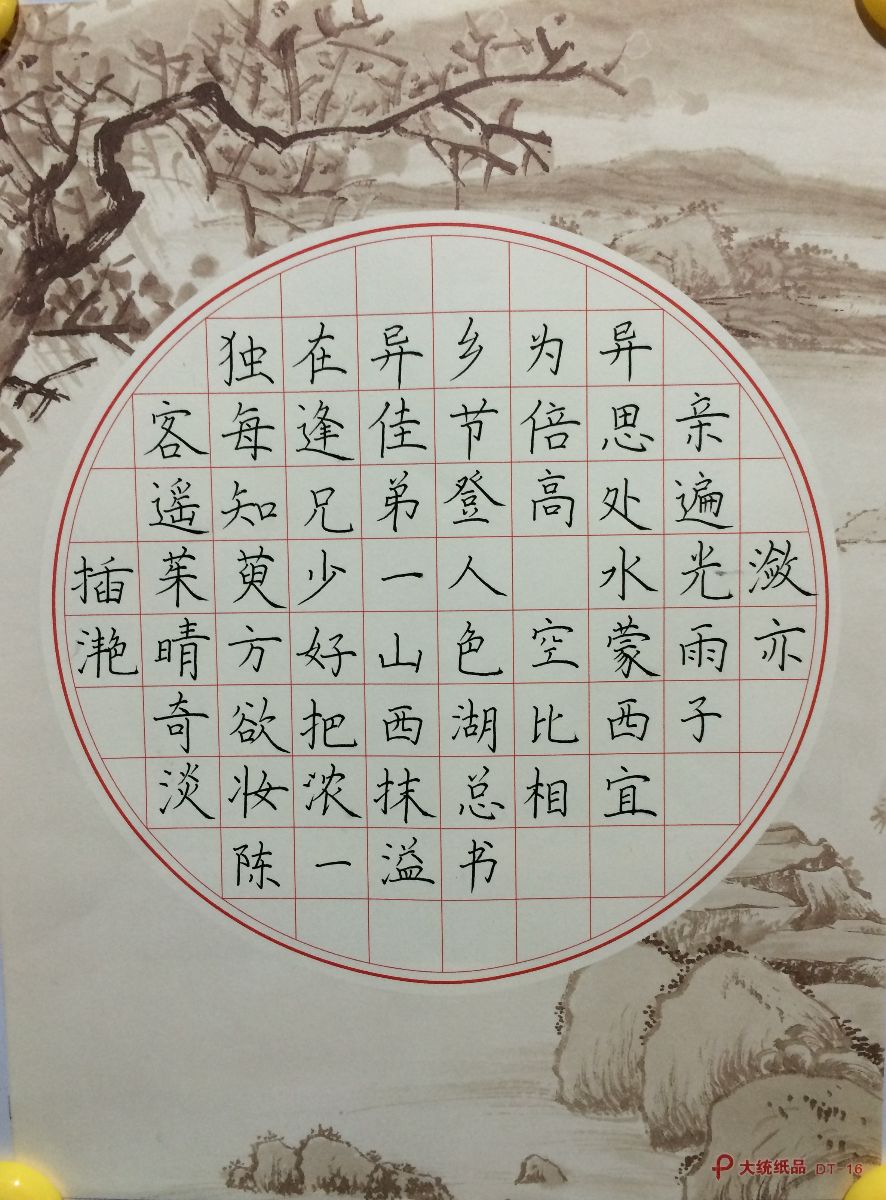 独在异乡为异
客每逢佳节倍思亲
遥知兄弟登高处遍
插茱萸少一人 水光潋
滟晴方好山色空蒙雨亦
奇欲把西湖比西子
淡妆浓抹总相宜
陈一溢书
大统纸品 DT-16